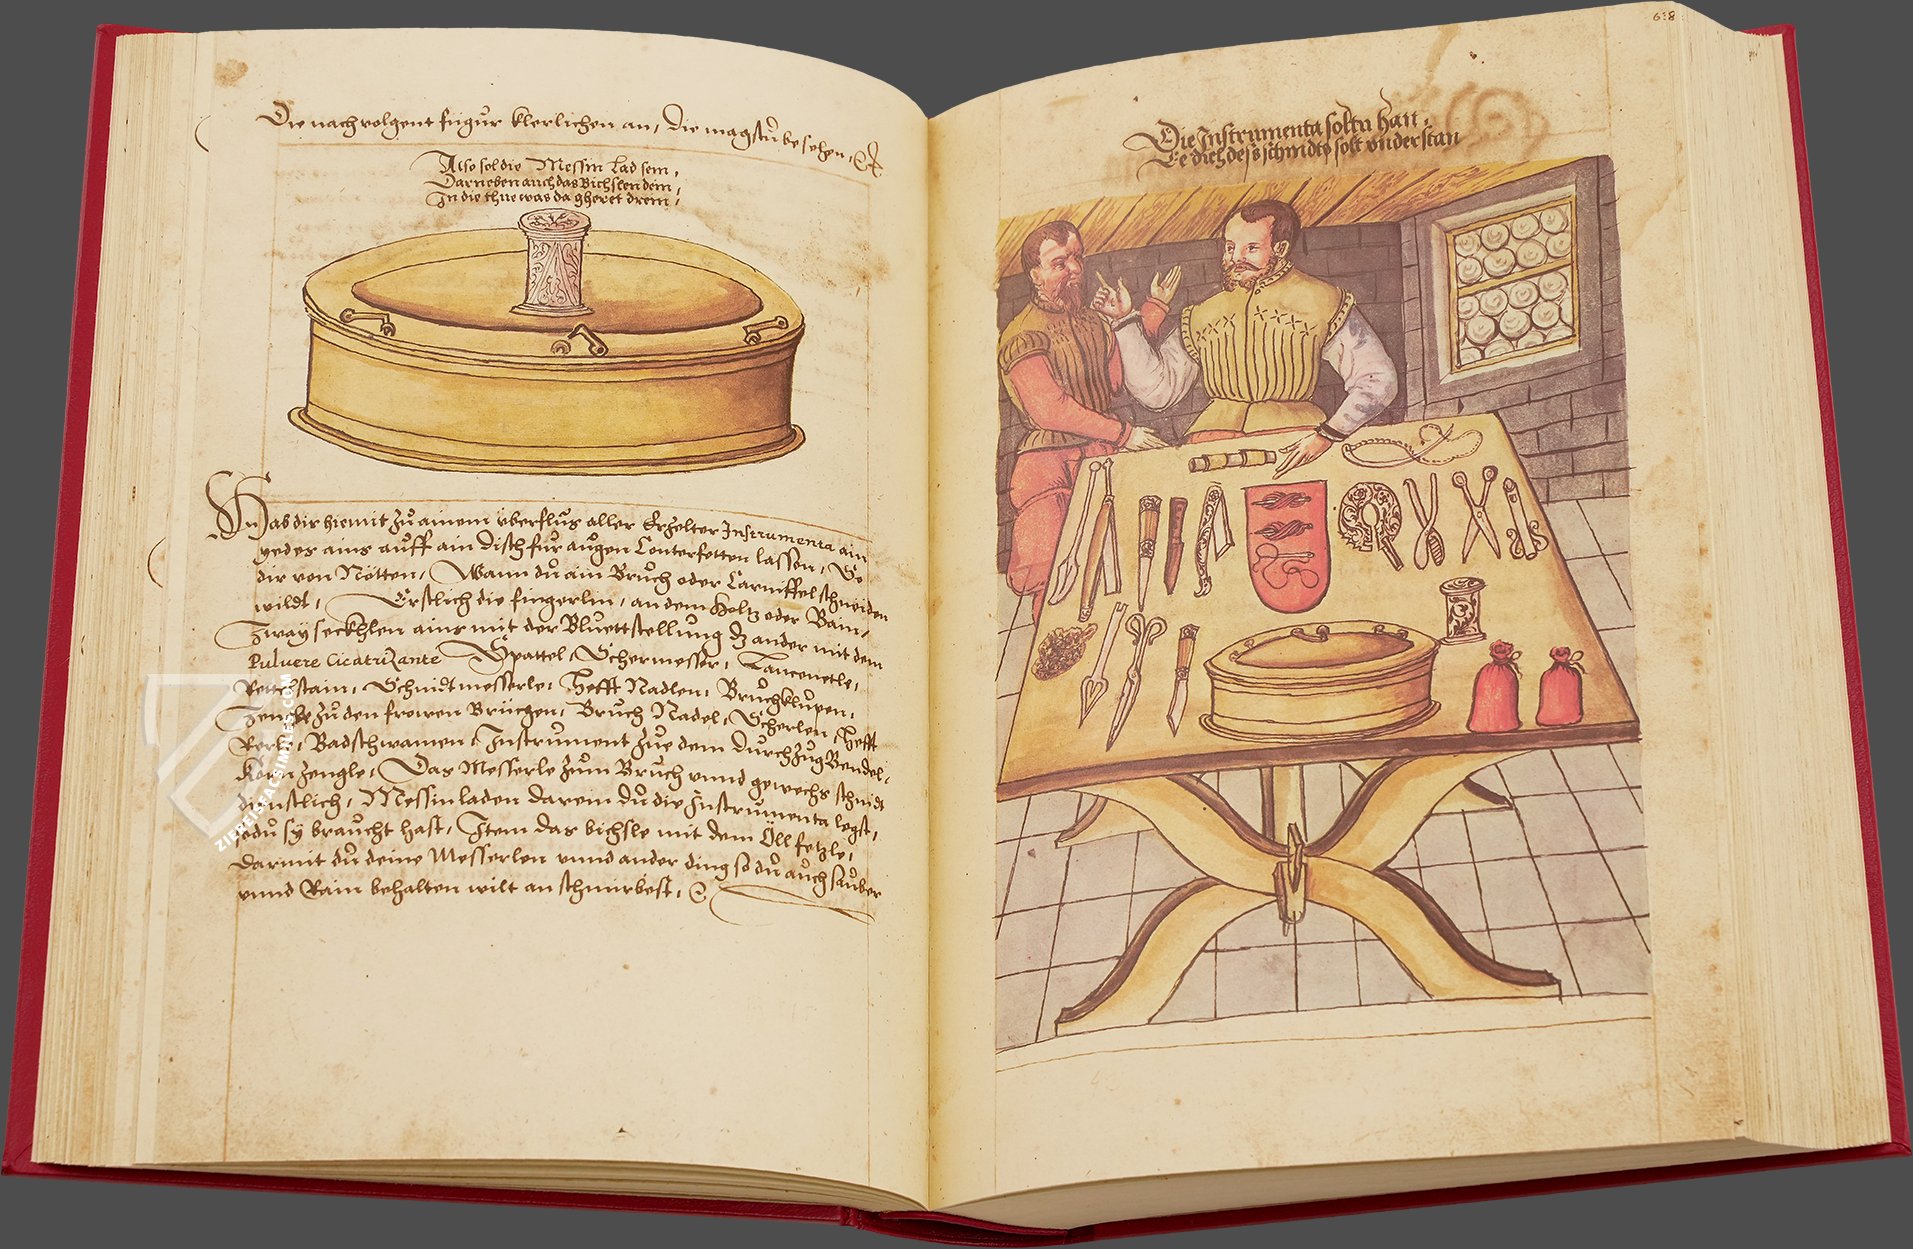 Die nachvolgent figur klerlichen an, die magstu besehen, &
Also sol die Messin Lad sein,
Darneben auch das Bichslen dein,
In die thue was da gheret drein,
Ich hab dir hiemit zů ainem überflus aller Erzelter Instrumenta ain
yedes ains auff ain disch fur augen Conterfetten lassen, So
dir von Nötten, Wann dů ain Brůch oder Carniffel schneiden
wildt, Erstlich die fingerlin, an dem Holtz oder Bain,
Zway seckhlen ains mit der Bluettstellung dz ander mit dem
Puluere Cicatrizante Spattel, Schermesser, Lancenetle,
Schnidtmesserle, Hefft Nadlen, Brůchklůpen,
zů den frowen Brüchen, Brůch Nadel, Scherlen, Hefft
Badschwamen, Instrument zue dem durchzůg Bendel,
Korn zengle, Das Messerle zům Brůch vnnd gewechs schnidt
dienstlich, Messin laden darein dů die Instrumenta legst,
so dů sy braucht hast, Item das bichsle mit dem Öll fetzle,
darmit dů deine Messerlen vnnd ander ding so dů auch sauber
vnnd Rain behalten wilt an schmirbest,
ZIEREIS FACSIMILES.COM
638
Die Instrumenta soltu han,
Ee dich deß schnidts solt vnderstan